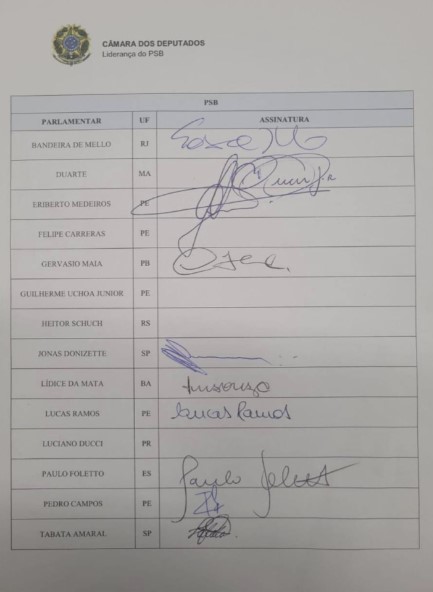 CÂMARA DOS DEPUTADOS
Liderança do PSB
PSB
PARLAMENTAR UF ASSINATURA
BANDEIRA DE MELLO RJ
DUARTE MA
ERIBERTO MEDEIROS PE
FELIPE CARRERAS PE
GERVASIO MAIA PB
GUILHERME UCHOA JUNIOR PE
HEITOR SCHUCH RS
JONAS DONIZETTE SP
LÍDICE DA MATA BA
LUCAS RAMOS PE Lucas Ramos
LUCIANO DUCCI PR
PAULO FOLETTO ES Paulo
PEDRO CAMPOS PE
TABATA AMARAL SP